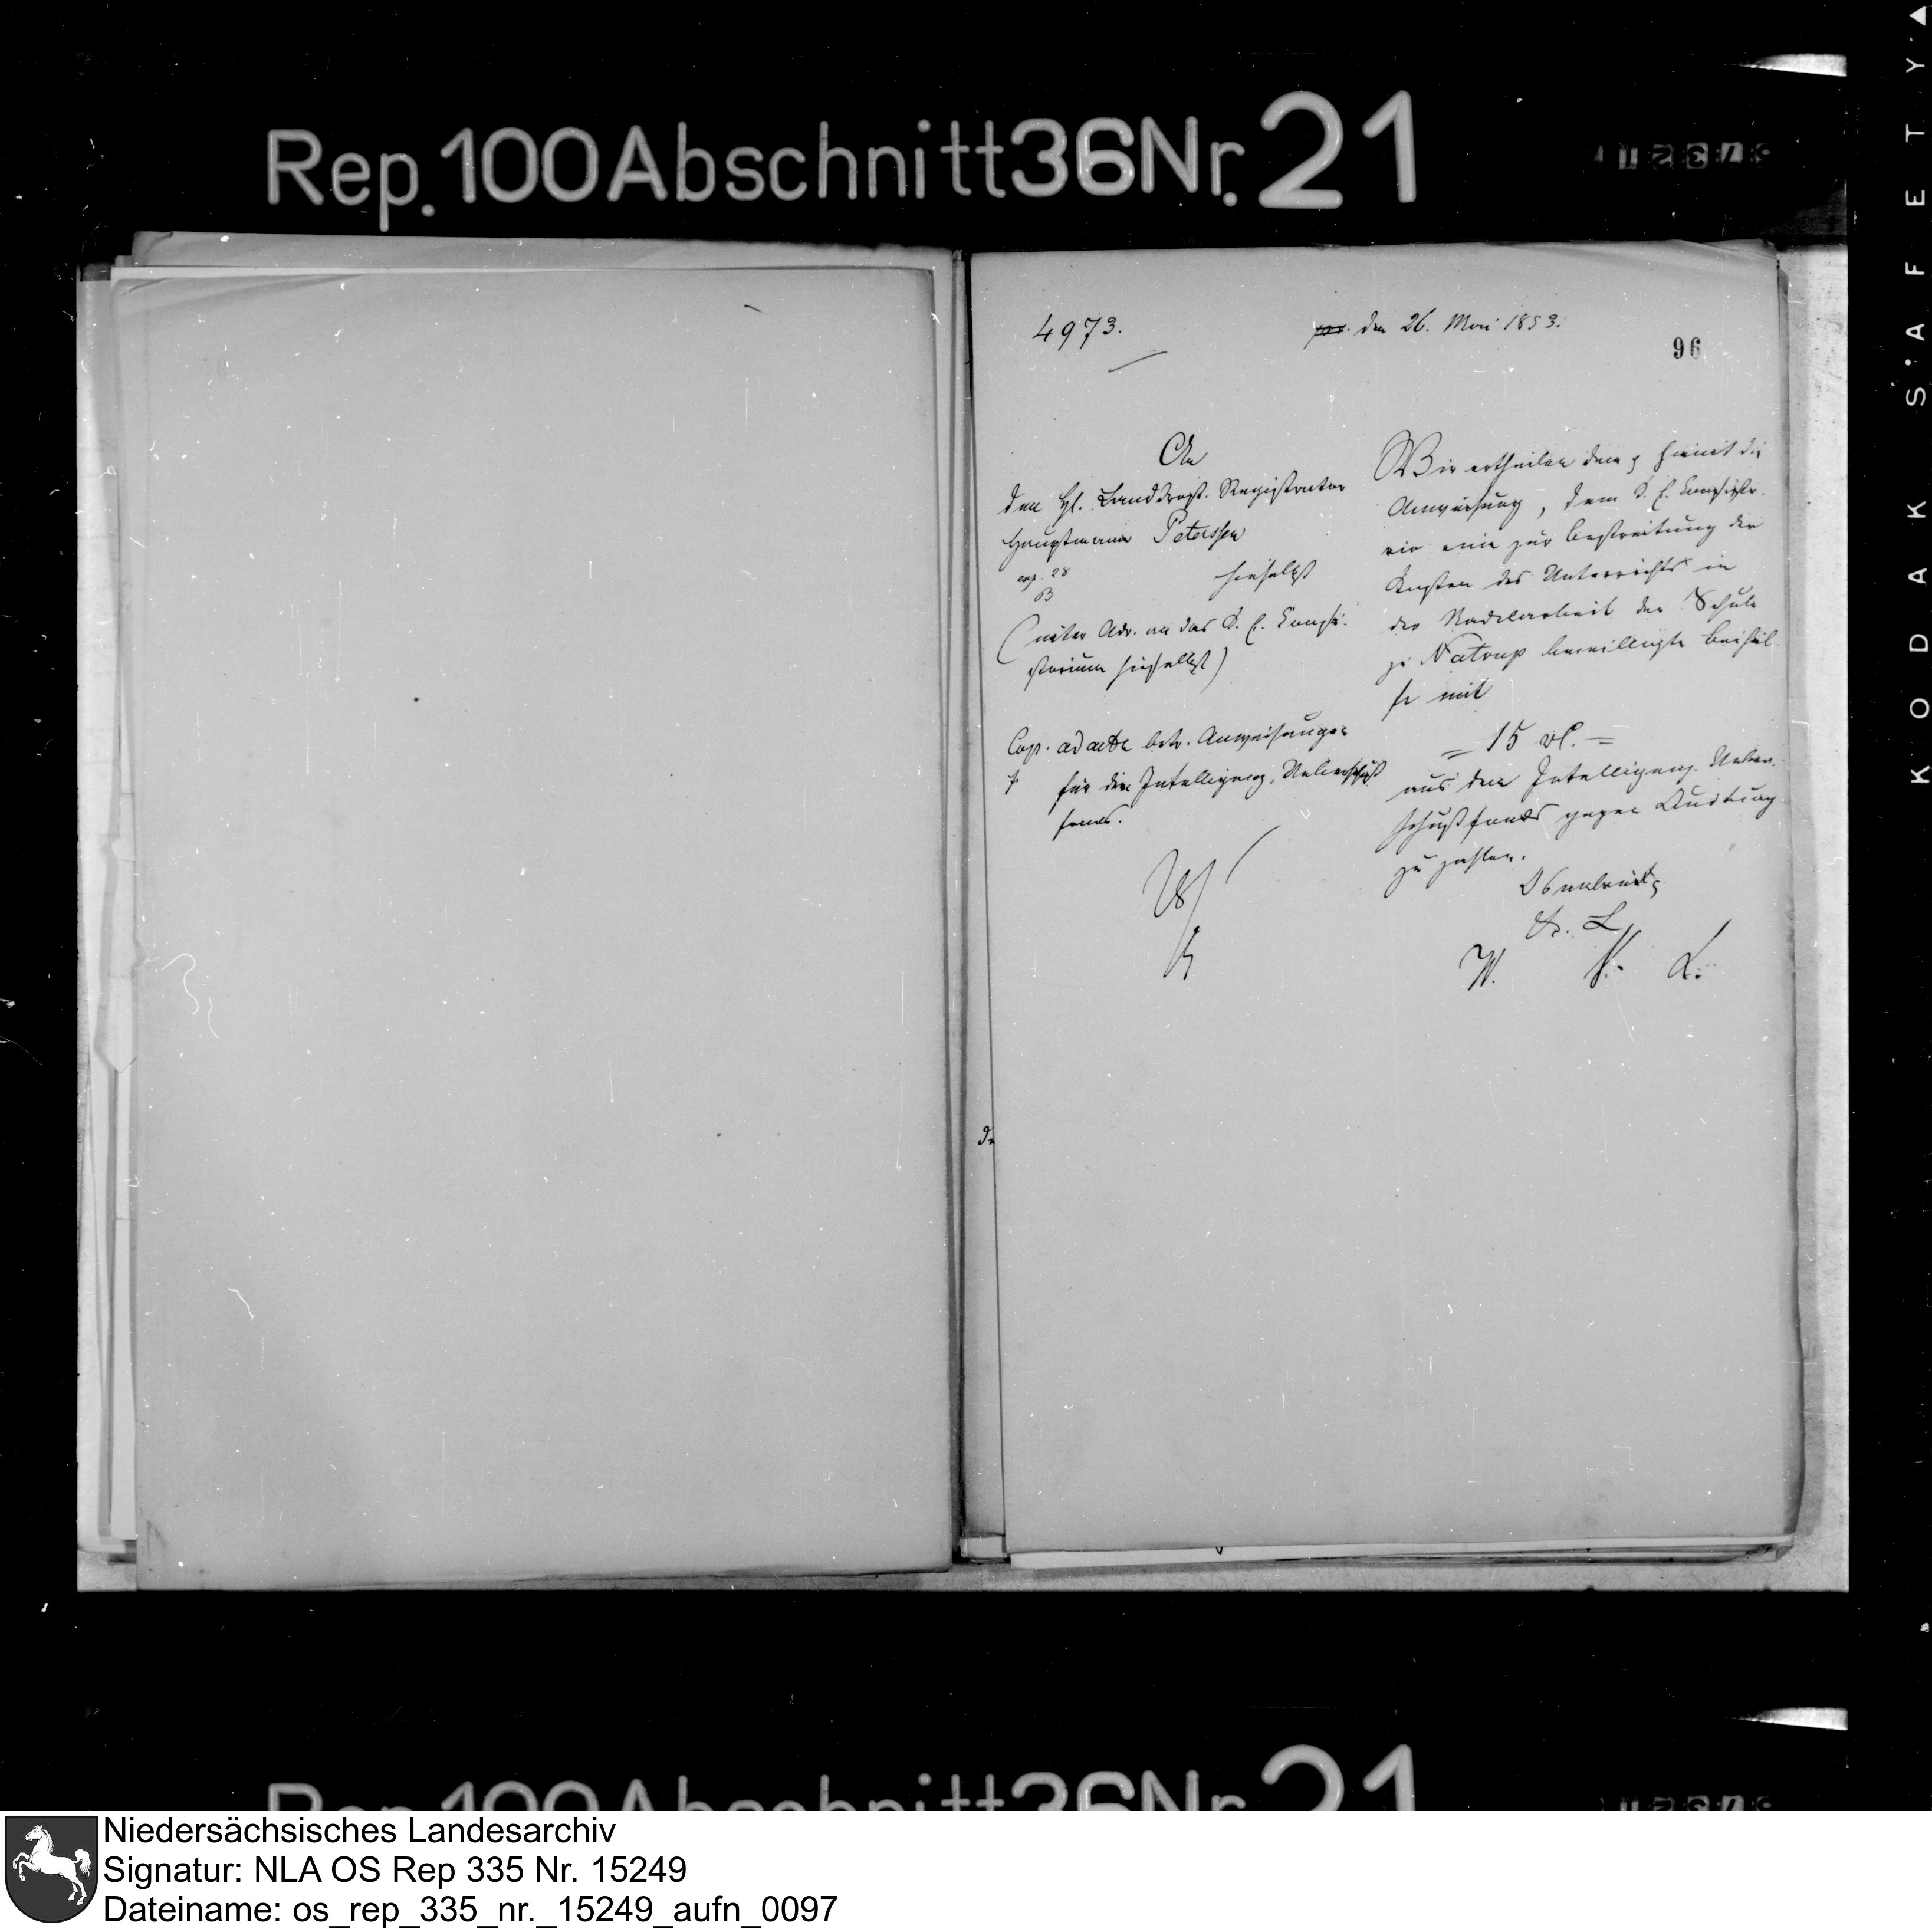 Rep. 100 Abschnitt 36 Nr. 21
4973.
den 26. Mai 1853.
96
An
den H. Landdrost. Registrator
Hauptmann Peterssen
exp. 28
hieselbst
(unter Adr. an das K. C. Consi-
storium hieselbst)
Cop. ad acta betr. Anweisungen
für den Intelligenz-Ueberschuß
fonds.
Wir ertheilen dem p hiemit die
Anweisung, dem K. C. Consisto-
rio eine zur Bestreitung der
Kosten des Unterrichts in
der Nadelarbeit der Schule
zu Natrup bewilligte Beihül-
fe mit
= 15 rl. =
aus dem Intelligenz-Ueber-
schußfonds gegen Quittung
zu zahlen.
Osnabrück
K. L.
W. L.
Rep. 100 Abschnitt 36 Nr. 21
KODAK SAFETY
Niedersächsisches Landesarchiv
Signatur: NLA OS Rep 335 Nr. 15249
Dateiname: os_rep_335_nr._15249_aufn_0097